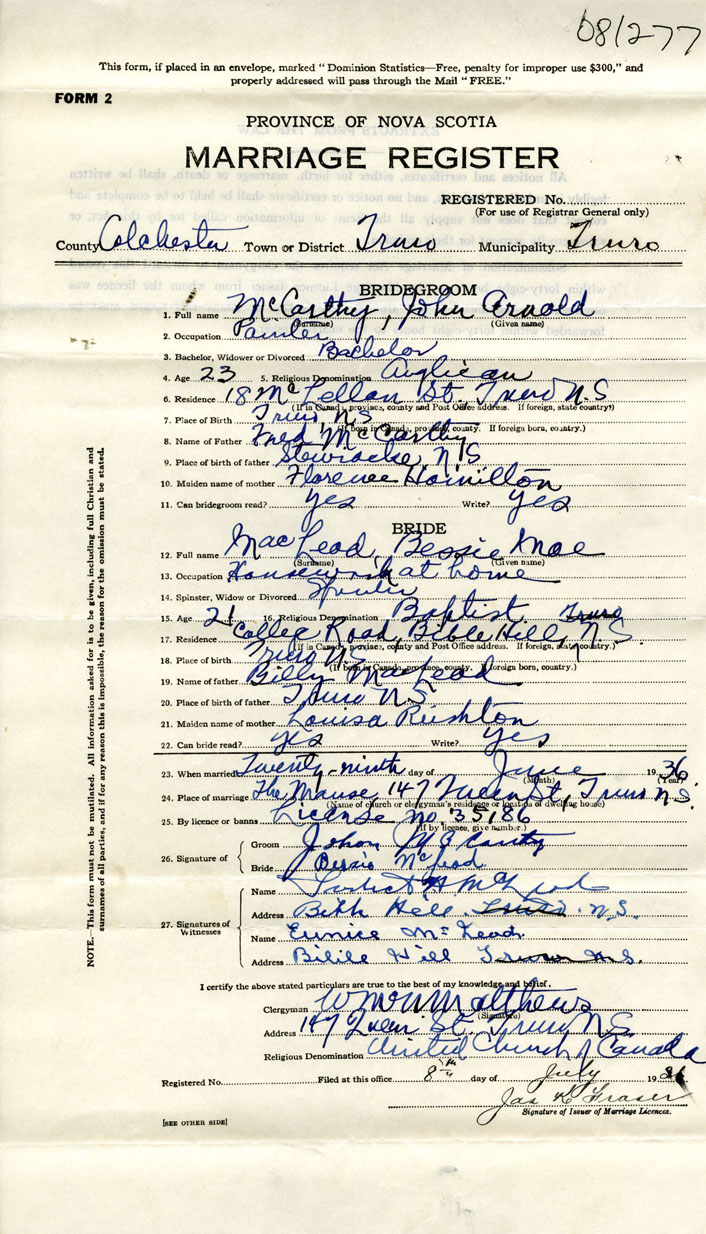 081277
This form, if placed in an envelope, marked "Dominion Statistics—Free, penalty for improper use $300," and
properly addressed will pass through the Mail "FREE."
FORM 2
PROVINCE OF NOVA SCOTIA
MARRIAGE REGISTER
REGISTERED No.
(For use of Registrar General only)
County Colchester Town or District Truro Municipality Truro
BRIDEGROOM
1. Full name McCarthy, John Arnold
(Surname) (Given name)
2. Occupation Painter
3. Bachelor, Widower or Divorced Bachelor
4. Age 23 5. Religious Denomination Anglican
6. Residence 18 McLellan St. Truro N.S
(If in Canada, province, county and Post Office address. If foreign, state country)
7. Place of Birth Truro, N.S
(If born in Canada, province, county. If foreign born, country.)
8. Name of Father Fred McCarthy
9. Place of birth of father Stewiacke, N S
10. Maiden name of mother Florence Hamilton
11. Can bridegroom read? yes Write? yes
BRIDE
12. Full name MacLeod, Bessie Mae
(Surname) (Given name)
13. Occupation Housework at home
14. Spinster, Widow or Divorced Spinster
15. Age 21 16. Religious Denomination Baptist Truro
17. Residence College Road, Bible Hill, N.S.
(If in Canada, province, county and Post Office address. If foreign, state country.)
18. Place of birth Truro N.S.
(If born in Canada, province, county. If foreign born, country.)
19. Name of father Billy MacLeod
20. Place of birth of father Truro N.S
21. Maiden name of mother Louisa Rushton
22. Can bride read? yes Write? yes
23. When married Twenty-ninth day of June 1936
(Month) (Year)
24. Place of marriage The Manse, 147 Queen St, Truro N.S.
(Name of church or clergyman's residence or location of dwelling house)
25. By licence or banns License no. 35186
(If by licence, give number.)
26. Signature of
Groom John McCarthy
Bride Bessie McLeod
27. Signatures of Witnesses
Name McLeod
Address Bible Hill Truro N.S.
Name Eunice McLeod
Address Bible Hill Truro N.S.
I certify the above stated particulars are true to the best of my knowledge and belief.
Clergyman Matthews
(Signature)
Address 147 Queen St. Truro N.S
Religious Denomination United Church of Canada
Registered No. Filed at this office 8th day of July 1936
Jas K Fraser
Signature of Issuer of Marriage Licences.
[SEE OTHER SIDE]
NOTE.—This form must not be mutilated. All information asked for is to be given, including full Christian and
surnames of all parties, and if for any reason this is impossible, the reason for the omission must be stated.